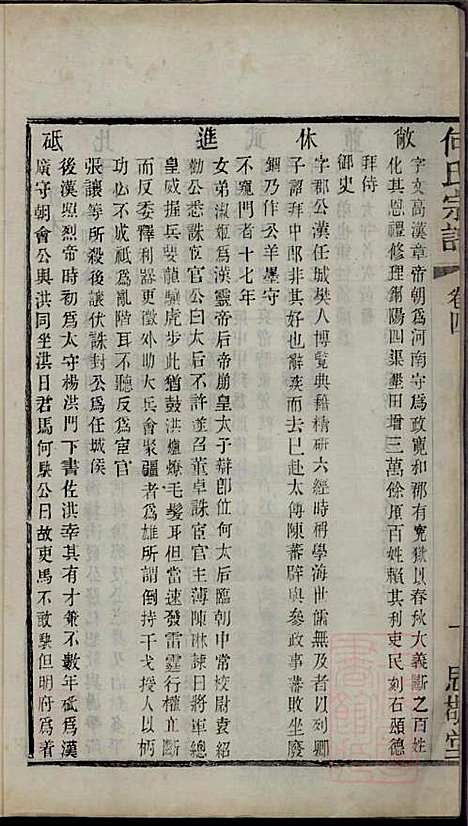 何氏宗譜 卷四 一 思敬堂
敞
字文高漢章帝朝為河南守為政寬和郡有寃獄以春秋大義斷之百姓
化其恩禮修理鮦陽四渠墾田增三萬餘頃百姓賴其利吏民刻石頌德
拜侍
御史
休
字郡公漢任城樊人博覽典籍精研六經時稱學海世儒無及者以列卿
子詔拜中郎非其好也辭疾而去已赴太傅陳蕃辟與參政事蕃敗坐廢
錮乃作公羊墨守
不窺門者十七年
進
女弟淑姬為漢靈帝后帝崩皇太子辯卽位何太后臨朝中常校尉袁紹
勸公悉誅宦官公白太后不許遂召董卓誅宦官主薄陳淋諫曰將軍總
皇威握兵要龍驤虎步此猶鼓洪爐燎毛髮耳但當速發雷霆行權立斷
而反委釋利器更徵外助大兵會聚彊者為雄所謂倒持干戈授人以柄
功必不成祇為亂階耳不聽反為宦官
張讓等所殺後讓伏誅封公為任城侯
砥
後漢照烈帝時初為太守楊洪門下書佐洪幸其有才兼不數年砥為漢
廣守朝會公與洪同坐洪曰君馬何駛公曰故吏馬不敢駛但明府為著